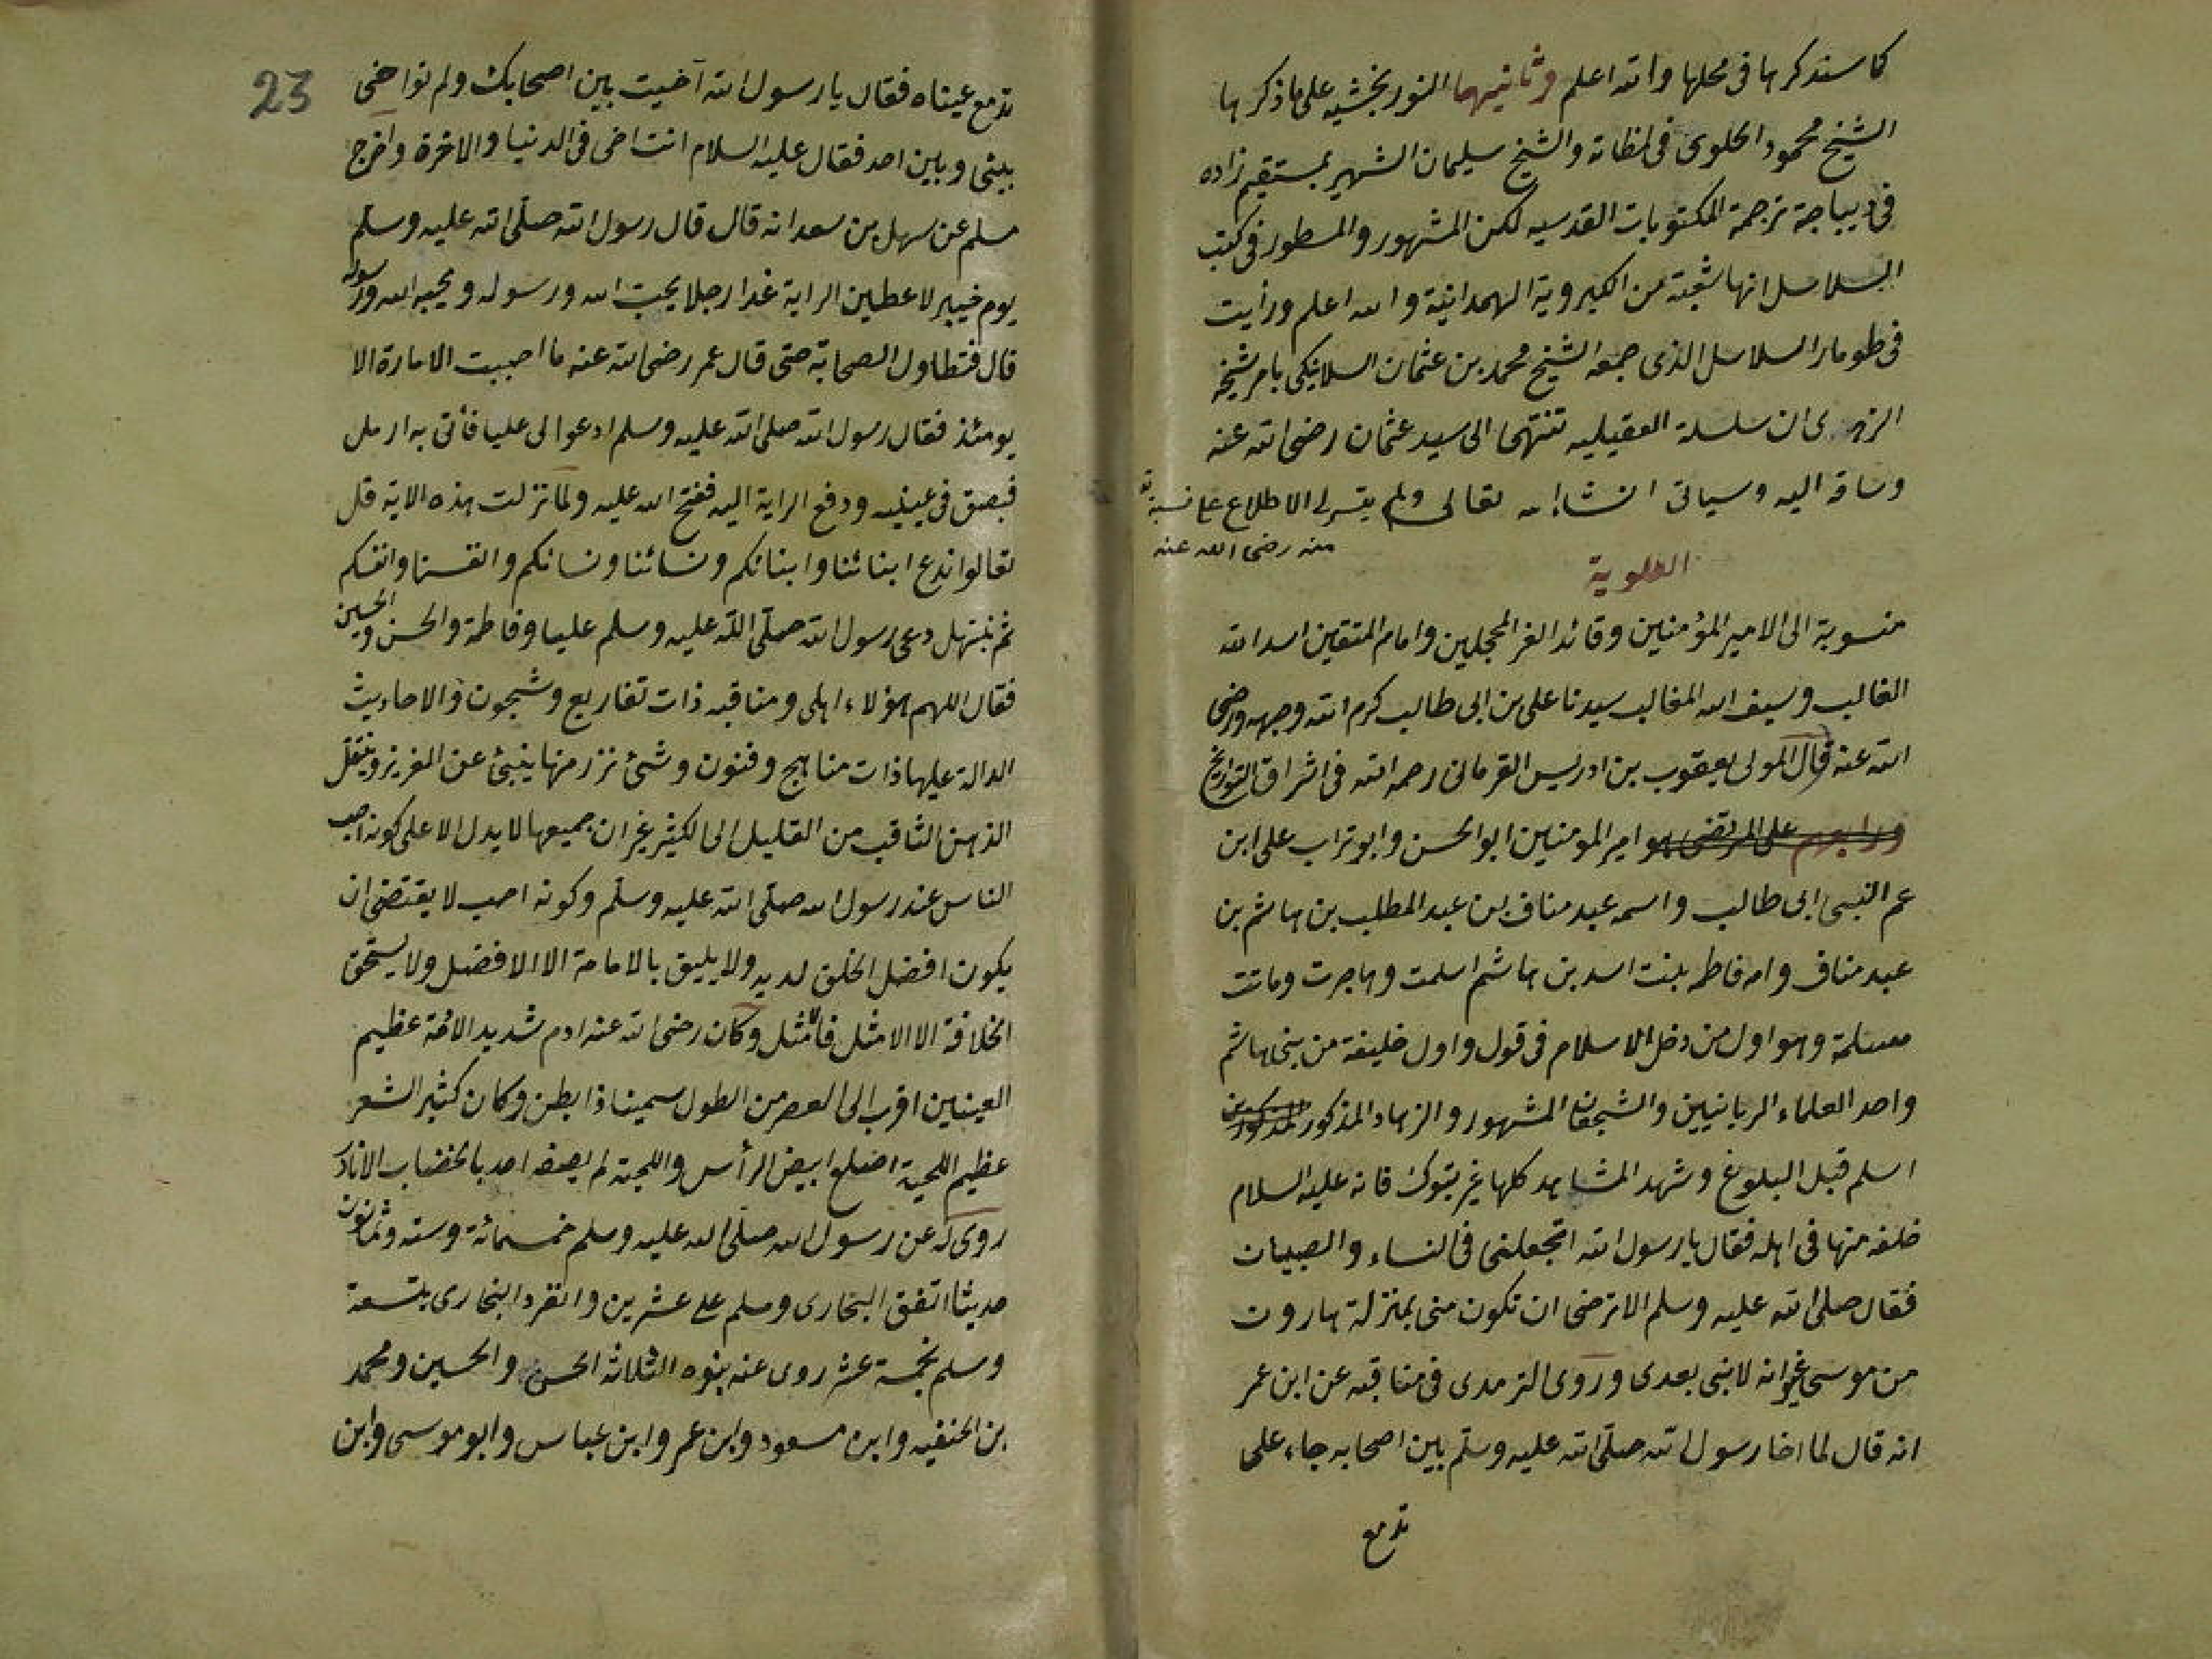 كما سنذكرها فى محلها والله اعلم وثانيهما النوربخشيه على ما ذكرها
الشيخ محمود الخلوى فى لمظاته والشيخ سليمان الشهير بمستقيم زاده
فى ديباجة ترجمة المكتوبات القدسيه لكن المشهور والمسطور فى كتب
السلاسل انها شعبة من الكبروية الهمدانية والله اعلم ورأيت
فى طومار السلاسل الذى جمعه الشيخ محمد بن عثمان السلانيكى بامر شيخه
الزهرى ان سلسلة العقيليه تنتهى الى سيد عثمان رضى الله عنه
وساقه اليه وسياتى انشاء الله تعالى ولم يتسر لى الاطلاع على نسبة
منه رضى الله عنه
العلوية
منسوبة الى الامير المؤمنين وقائد الغر المحجلين وامام المتقين اسد الله
الغالب وسيف الله المغالب سيدنا على بن ابى طالب كرم الله وجهه ورضى
الله عنه قال المولى يعقوب بن ادريس القرمانى رحمه الله فى اشراق التواريخ
ورابعهم على المرتضى هو امير المومنين ابو الحسن وابو تراب على ابن
عم النبى ابى طالب واسمه عبد مناف بن عبد المطلب بن هاشم بن
عبد مناف وامه فاطمه بنت اسد بن هاشم اسلمت وهاجرت وماتت
مسلمة وهو اول من دخل الاسلام فى قول واول خليفة من بنى هاشم
واحد العلماء الربانيين والشجعان المشهور والزهاد المذكور
اسلم قبل البلوغ وشهد المشاهد كلها غير تبوك فانه عليه السلام
خلفه منها فى اهله فقال يا رسول الله اتجعلنى فى النساء والصبيان
فقال صلى الله عليه وسلم الا ترضى ان تكون منى بمنزلة هارون
من موسى غير انه لا نبى بعدى وروى الترمدى فى مناقبه عن ابن عمر
انه قال لما اخا رسول الله صلى الله عليه وسلم بين اصحابه جاء على
تدمع
23
تدمع عيناه فقال يا رسول الله آخيت بين اصحابك ولم تواخى
بينى وبين احد فقال عليه السلام انت اخى فى الدنيا والاخرة واخرج
مسلم عن سهل بن سعد انه قال قال رسول الله صلى الله عليه وسلم
يوم خيبر لاعطين الراية غدا رجلا يحب الله ورسوله ويحبه الله ورسوله
قال فتطاول الصحابة حتى قال عمر رضى الله عنه ما احببت الامارة الا
يومئذ فقال رسول الله صلى الله عليه وسلم ادعوا لى عليا فأتى به ارمل
فبصق فى عينيه ودفع الراية اليه ففتح الله عليه ولما نزلت هذه الاية قل
تعالوا ندع ابنائنا وابنائكم ونسائنا ونسائكم وانفسنا وانفسكم
ثم نبتهل دعى رسول الله صلى الله عليه وسلم عليا وفاطمة والحسن والحسين
فقال اللهم هؤلاء اهلى ومناقبه ذات تفاريع وشجون والاحاديث
الدالة عليها ذات مناهج وفنون وشئ نزر منها ينبئ عن الغزير وينتقل
الذهن الثاقب من القليل الى الكثير غير ان جميعها لا يدل الا على كونه احب
الناس عند رسول الله صلى الله عليه وسلم وكونه احب لا يقتضى ان
يكون افضل الخلق لديه ولا يليق بالامامة الا الافضل ولا يستحق
الخلافة الا الامثل فالامثل وكان رضى الله عنه ادم شديد الادمة عظيم
العينين اقرب الى القصر من الطول سمينا ذا بطن وكان كثير الشعر
عظيم اللحية اصلع ابيض الرأس واللحية لم يصفه احد بالخضاب الا نادرا
روى له عن رسول الله صلى الله عليه وسلم خمسمائة وستة وثمانون
حديثا اتفق البخارى ومسلم على عشرين وانفرد البخارى بتسعة
ومسلم بخمسة عشر روى عنه بنوه الثلاثة الحسن والحسين ومحمد
بن الحنفيه وابن مسعود وابن عمر وابن عباس وابو موسى وابن